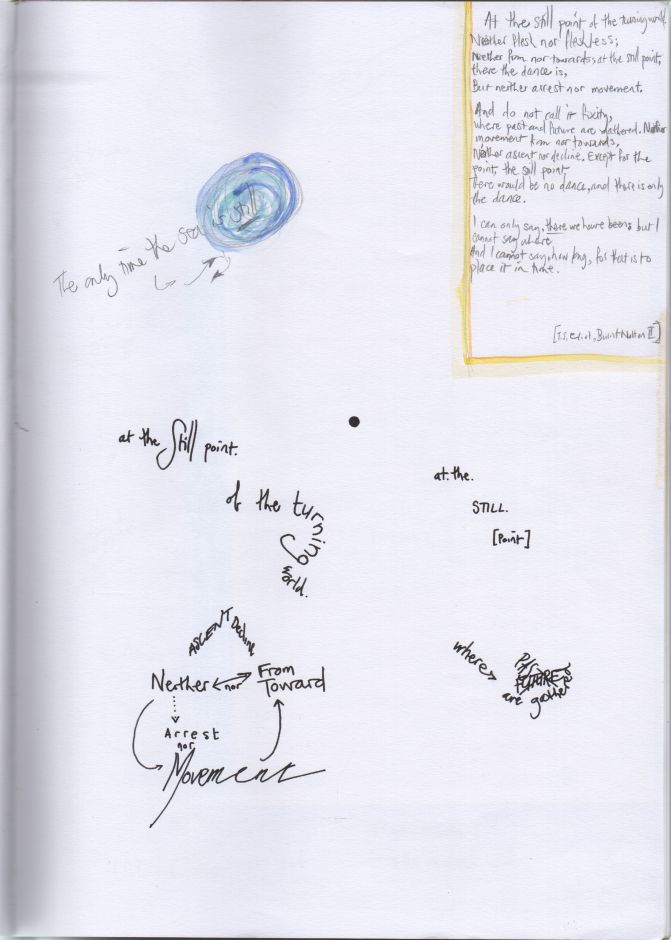 At the still point of the turning world.
Neither flesh nor fleshless;
Neither from nor towards; at the still point,
there the dance is,
But neither arrest nor movement.
And do not call it fixity,
where past and future are gathered. Neither
movement from nor towards,
Neither ascent nor decline. Except for the
point, the still point,
There would be no dance, and there is only
the dance.
I can only say, there we have been: but I
cannot say where
And I cannot say, how long, for that is to
place it in time.
[T.S. Eliot, Burnt Norton II]
The only time the sea is still
at the Still point.
of the turning
world.
at. the.
STILL.
[Point]
ASCENT Decline
Neither nor From
Toward
Arrest
nor
Movement
where
FUTURE
are gather